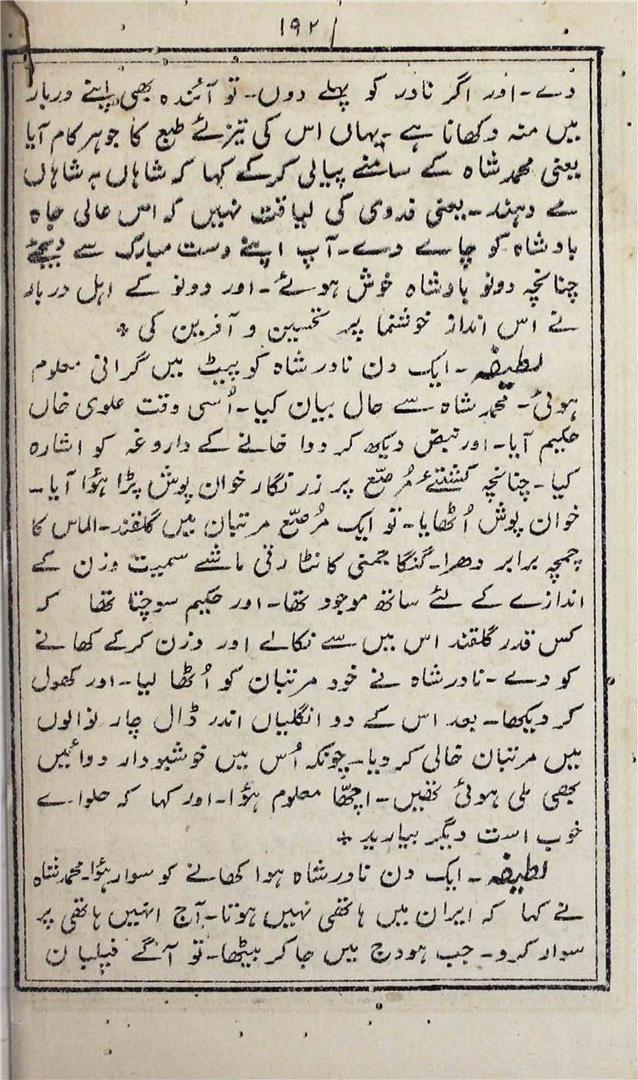 ۱۹۲
دے۔ اور اگر نادر کو پہلے دوں۔ تو آئندہ بھی اپنے دربار
میں منہ دکھانا ہے۔ یہاں اس کی تیزئے طبع کا جوہر کام آیا
یعنی محمد شاہ کے سامنے پیالی کرکے کہا کہ شاہاں بہ شاہاں
مے دہند۔ یعنی فدوی کی لیاقت نہیں کہ اس عالی جاہ
بادشاہ کو چاے دے۔ آپ اپنے دست مبارک سے دیجئے
چنانچہ دونو بادشاہ خوش ہوئے۔ اور دونو کے اہل دربار
نے اس انداز خوشنما پر تحسین و آفرین کی *
لطیفہ۔ ایک دن نادر شاہ کو پیٹ میں گرانی معلوم
ہوئی۔ محمد شاہ سے حال بیان کیا۔ اُسی وقت علوی خاں
حکیم آیا۔ اور نبض دیکھ کر دوا خانے کے داروغہ کو اشارہ
کیا۔ چنانچہ کشتئے مُرصّع پر زرنگار خوان پوش پڑا ہؤا آیا۔
خوان پوش اُٹھایا۔ تو ایک مُرصّع مرتبان میں گلقند۔ الماس کا
چمچہ برابر دھرا۔ گنگا جمنی کانٹا رتی ماشے سمیت وزن کے
اندازے کے لئے ساتھ موجود تھا۔ اور حکیم سوچتا تھا کہ
کس قدر گلقند اس میں سے نکالے اور وزن کرکے کھانے
کو دے۔ نادر شاہ نے خود مرتبان کو اُٹھا لیا۔ اور کھول
کر دیکھا۔ بعد اس کے دو انگلیاں اندر ڈال چار نوالوں
میں مرتبان خالی کر دیا۔ چونکہ اُس میں خوشبودار دوائیں
بھی ملی ہوئی تھیں۔ اچھّا معلوم ہؤا۔ اور کہا کہ حلواے
خوب است دیگر بیارید *
لطیفہ۔ ایک دن نادر شاہ ہوا کھانے کو سوار ہؤا۔ محمد شاہ
نے کہا کہ ایران میں ہاتھی نہیں ہوتا۔ آج انہیں ہاتھی پر
سوار کرو۔ جب ہودج میں جا کر بیٹھا۔ تو آگے فیلبان